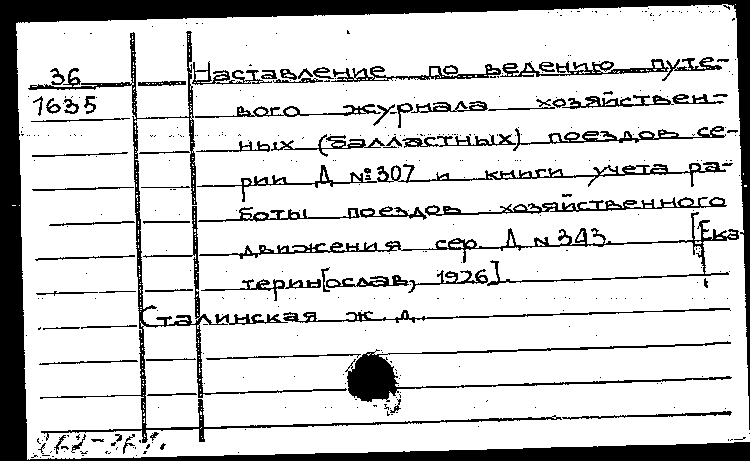 36
1635
Наставление по ведению путе-
вого журнала хозяйствен-
ных (балластных) поездов се-
рии Д №307 и книги учета ра-
боты поездов хозяйственного
движения сер. Д N 343. [Ека-
терин[ослав, 1926].
Сталинская ж. д.